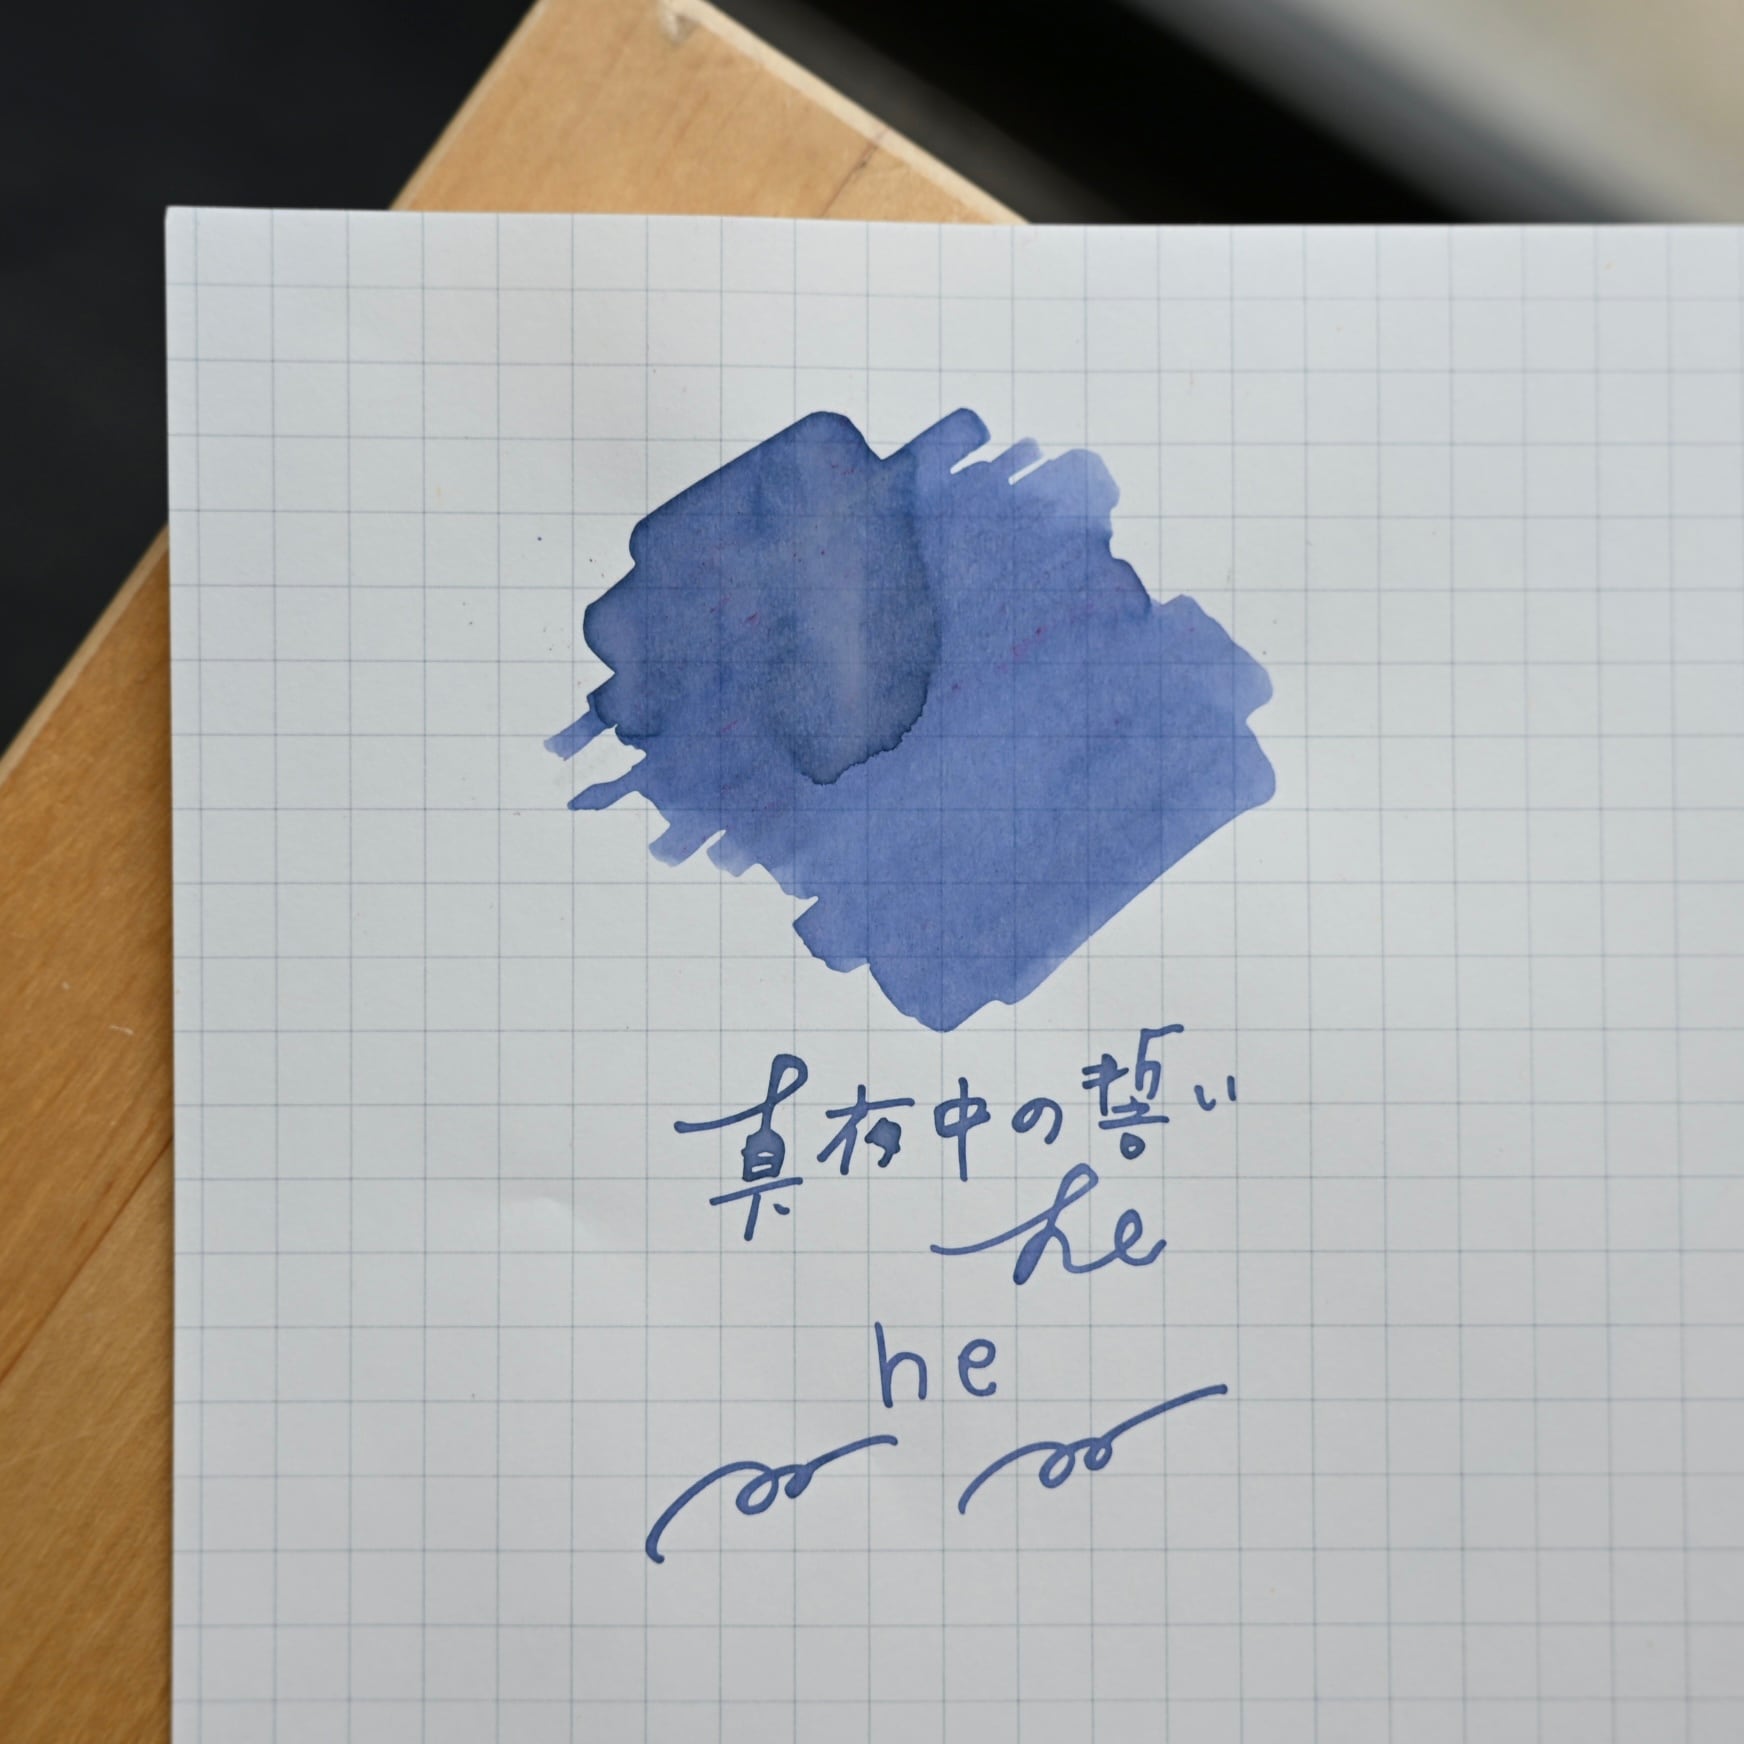 真夜中の誓い
he
he